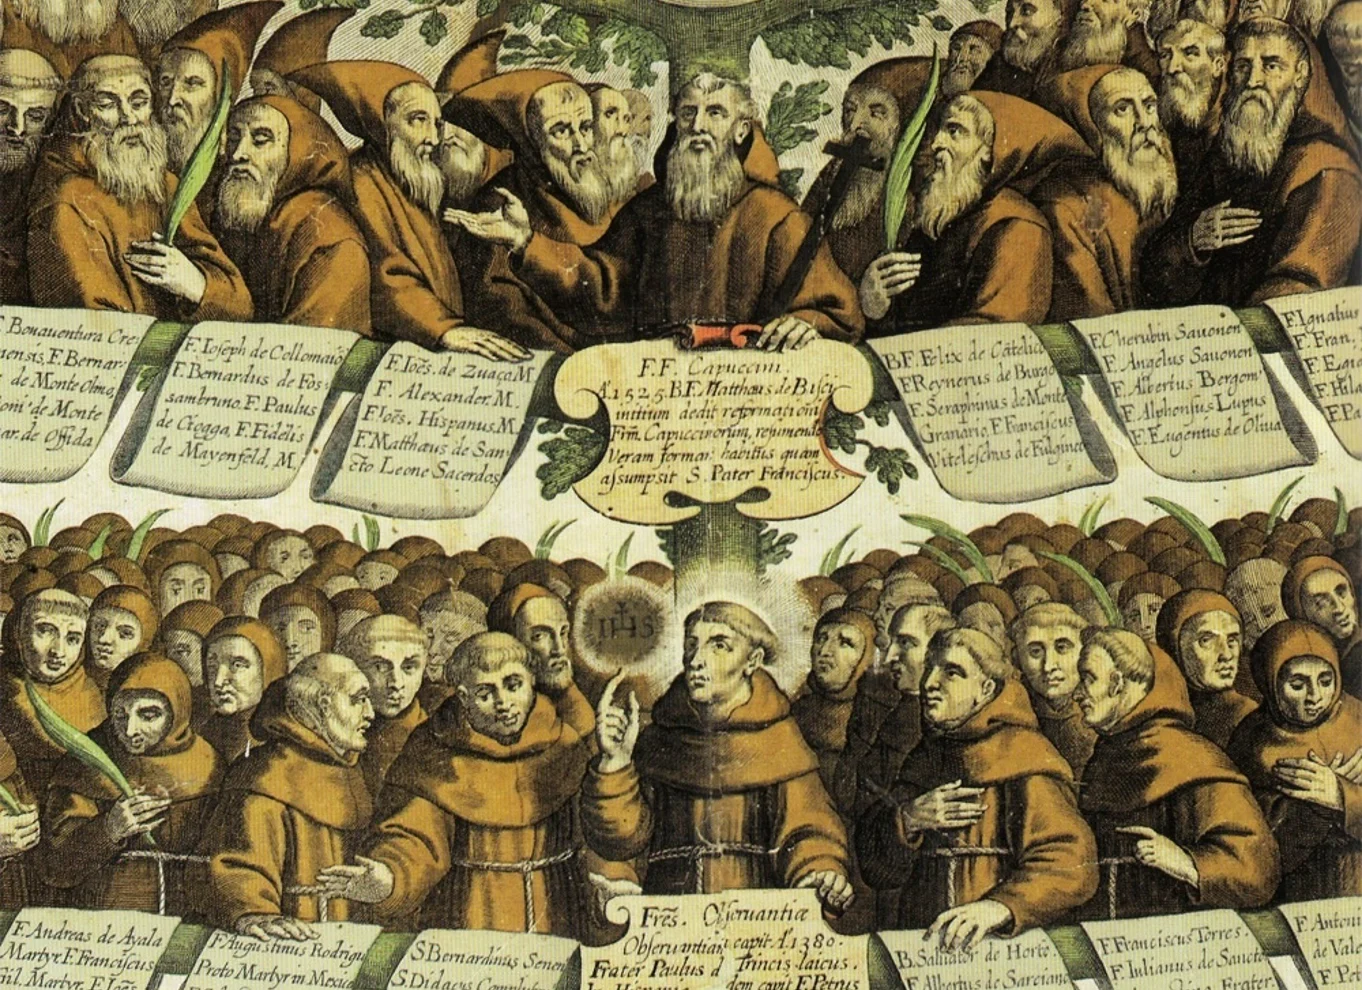 F. Bonauentura Cre:
nensis, F. Bernar:
de Monte Olmo,
oni de Monte
ar. de Offida
F. Ioseph de Collomaio
F. Bernardus de Fos:
sambruno. F. Paulus
de Cioaga, F. Fidelis
de Mayenfeld, M.
F. Ioēs. de Zuaça M.
F. Alexander. M.
F. Ioēs. Hispanus M.
F. Matthæus de San:
cto Leone Sacerdos
F. F. Capuccini.
A.1525. B.F. Matthæus de Bisci
initium dedit reformationi
Frm. Capuccinorum, resumendo
Veram formam habitus quam
assumpsit S. Pater Franciscus.
B.F. Felix de Cātalic.
F Reynerus de Burgo
F. Seraphinus de Monte
Granario, F. Franciscus
Viteleschus de Fulginea
F. Cherubin Sauonen
F. Angelus Sauonen
F. Albertus Bergom.
F. Alphonsus Lupus
F. Eugenius de Oliua
F. Ignatius
F. Fran.
F. Euge
F. Hila
F. Pa
IHS
F. Andreas de Ayala
Martyr F. Franciscus
Gil. Martyr. F. Ioēs
F. Augustinus Rodrigu
Proto Martyr in Mexico
S. Bernardinus Senen
S. Didacus Complut
Frēs. Obseruantiæ
Obseruantia, capit A.1380.
Frater Paulus d Trincis laicus.
In Hispania dem capit F. Petrus
B. Saluator de Horte.
F. Albertus de Sarciano
F. Franciscus Torres.
F. Iulianus de Sancto
Frater.
F. Antoni
de Vale
F. Pet